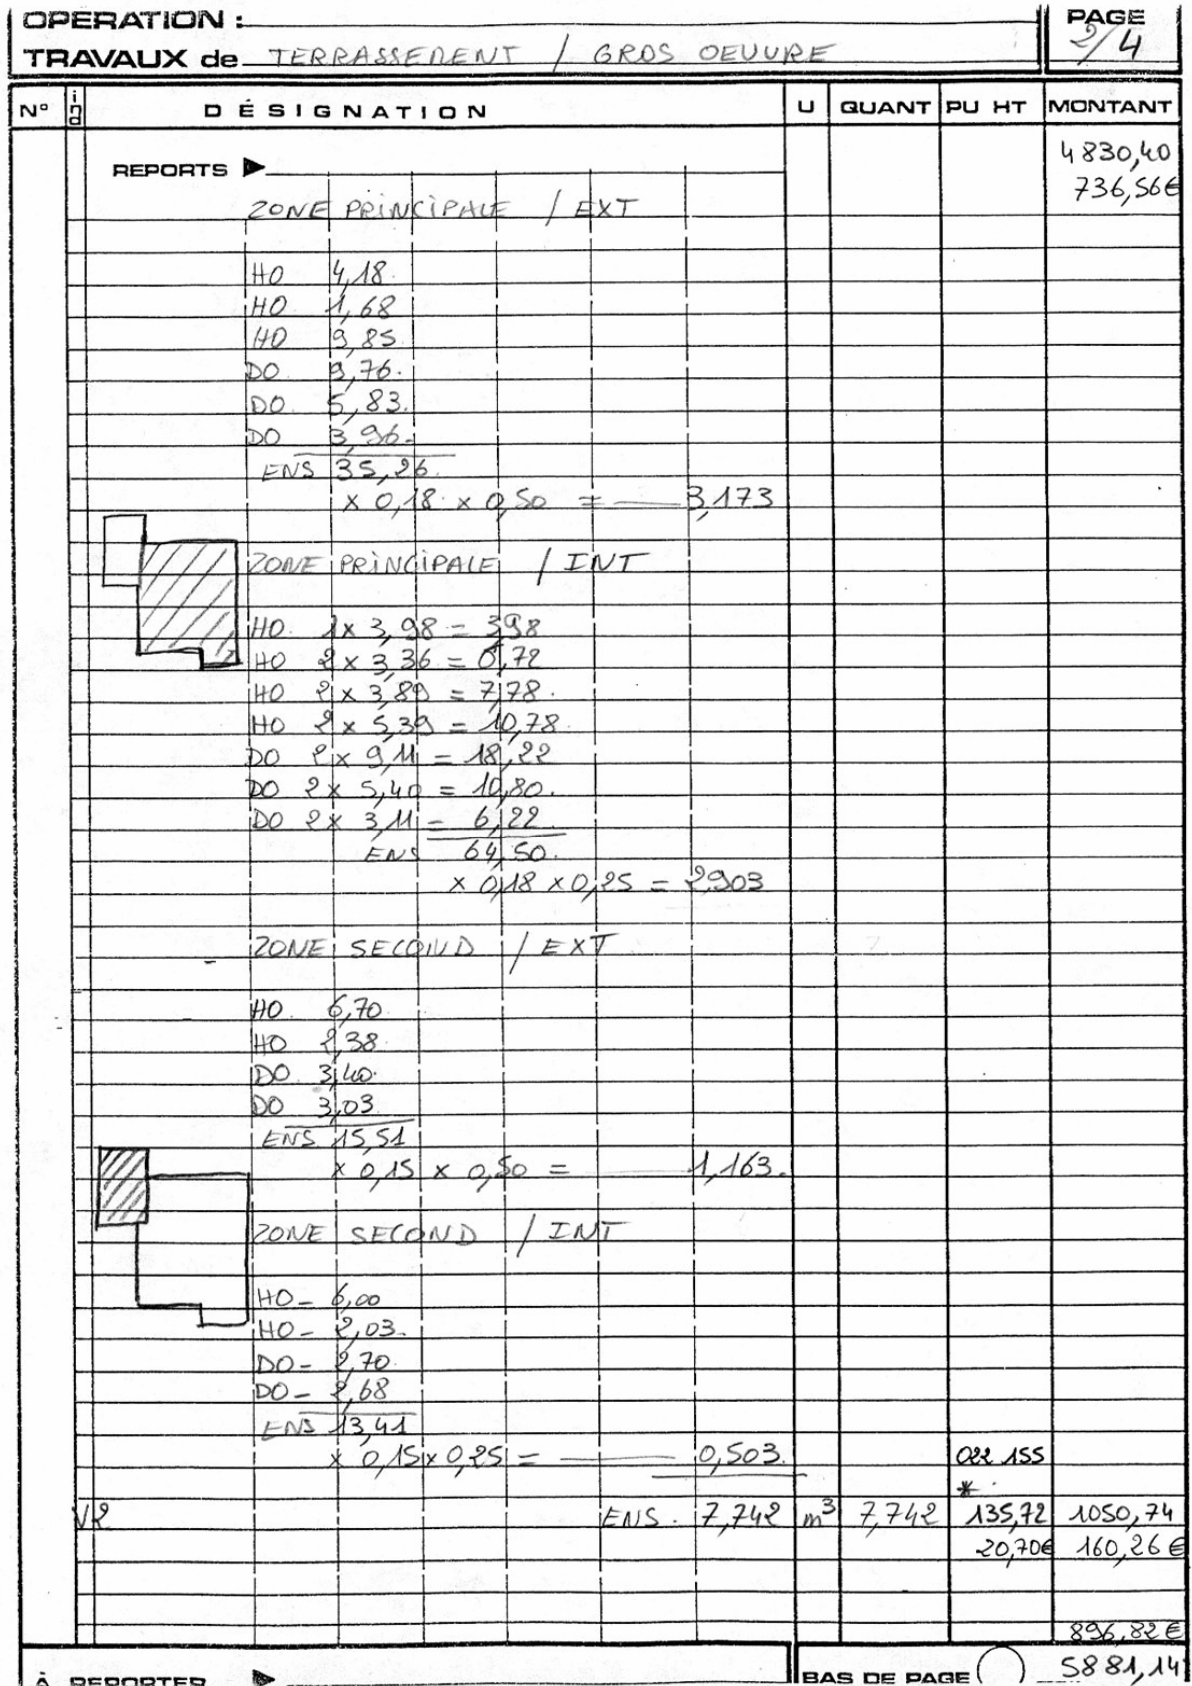 OPERATION :
PAGE
2/4
TRAVAUX de TERRASSEMENT / GROS OEUVRE
N° ind DÉSIGNATION U QUANT PU HT MONTANT
4830,40
REPORTS ►
736,56€
ZONE PRINCIPALE / EXT
HO 4,18.
HO 1,68
HO 9,85
DO 9,76.
DO 5,83.
DO 3,96.
ENS 35,26.
x 0,18 x 0,50 = 3,173
ZONE PRINCIPALE / INT
HO. 1x 3,98 = 3,98
HO 2 x 3,36 = 6,72
HO 2 x 3,89 = 7,78.
HO 2 x 5,39 = 10,78.
DO 2 x 9,11 = 18,22
DO 2 x 5,40 = 10,80.
DO 2 x 3,11 = 6,22.
ENS 64,50.
x 0,18 x 0,25 = 2,903
ZONE SECOND / EXT
HO. 6,70
HO 2,38
DO 3,40.
DO 3,03
ENS 15,51
x 0,15 x 0,50 = 1,163.
ZONE SECOND / INT
HO - 6,00
HO - 2,03.
DO - 2,70.
DO - 2,68
ENS 13,41
x 0,15 x 0,25 = 0,503. 022 155
*
V2 ENS. 7,742 m³ 7,742 135,72 1050,74
20,70€ 160,26 €
896,82 €
À REPORTER ► BAS DE PAGE 5881,14